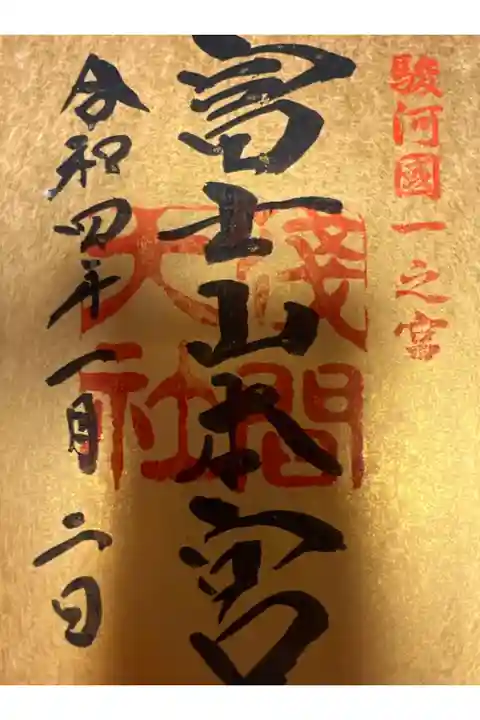 駿河國一之宮
富士山本宮
淺間大社
令和四年一月二日